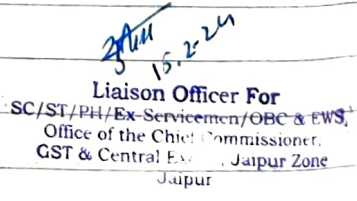 15.2.24
Liaison Officer For
SC/ST/PH/Ex-Servicemen/OBC & EWS,
Office of the Chief Commissioner,
GST & Central Jaipur Zone
Jaipur